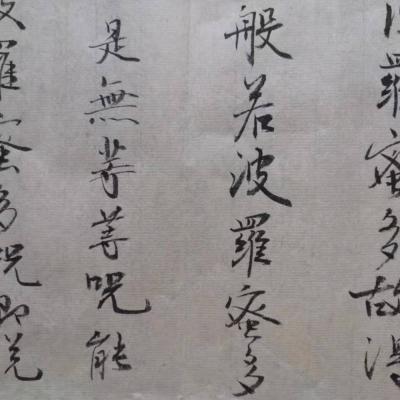 波羅蜜多故得
般若波羅蜜多
是無等等咒能
波羅蜜多咒即說